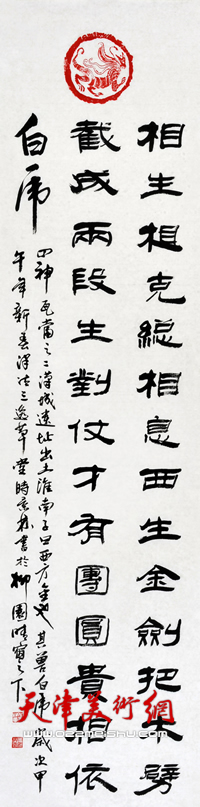 相生相克總相息西生金劍把木劈
截成兩段生對仗才有團圓貴相依
白虎
四神瓦當之二漢城遺址出土淮南子曰西方金也其獸白虎歲次甲
午年新春津沽三逸草堂時景林書於柳園晴窗之下
天津美術網
www.022meishu.com